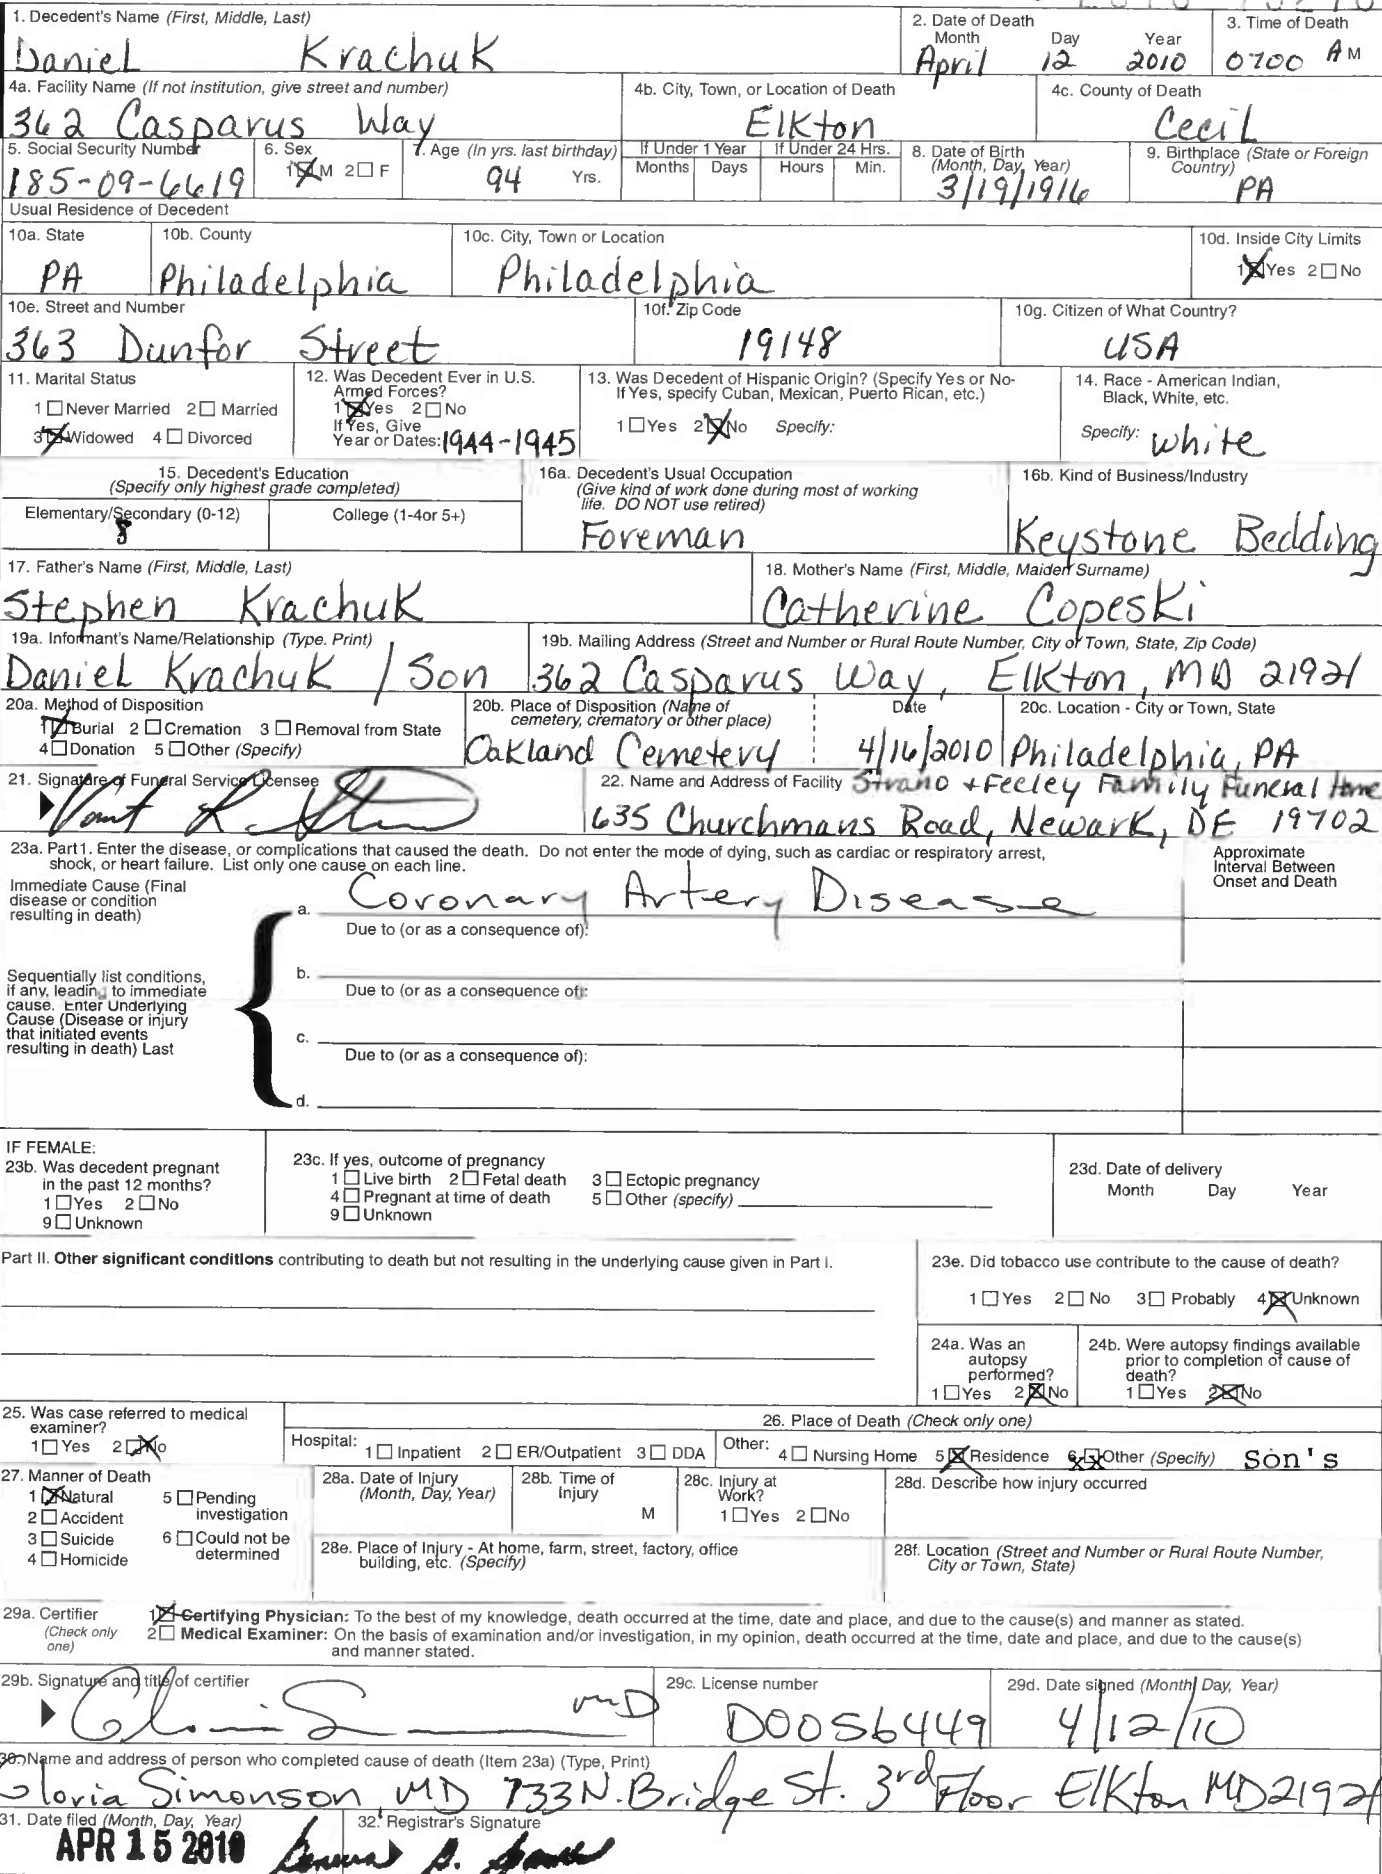 1. Decedent's Name (First, Middle, Last)
Daniel Krachuk
2. Date of Death
Month Day Year
April 12 2010
3. Time of Death
0700 A M
4a. Facility Name (If not institution, give street and number)
362 Casparus Way
4b. City, Town, or Location of Death
Elkton
4c. County of Death
Cecil
5. Social Security Number
185-09-6619
6. Sex
1 M 2 F
7. Age (In yrs. last birthday)
94 Yrs.
If Under 1 Year
Months Days
If Under 24 Hrs.
Hours Min.
8. Date of Birth
(Month, Day, Year)
3/19/1916
9. Birthplace (State or Foreign
Country)
PA
Usual Residence of Decedent
10a. State
PA
10b. County
Philadelphia
10c. City, Town or Location
Philadelphia
10d. Inside City Limits
1 Yes 2 No
10e. Street and Number
363 Dunfor Street
10f. Zip Code
19148
10g. Citizen of What Country?
USA
11. Marital Status
1 Never Married 2 Married
3 Widowed 4 Divorced
12. Was Decedent Ever in U.S.
Armed Forces?
1 Yes 2 No
If Yes, Give
Year or Dates: 1944-1945
13. Was Decedent of Hispanic Origin? (Specify Yes or No-
If Yes, specify Cuban, Mexican, Puerto Rican, etc.)
1 Yes 2 No Specify:
14. Race - American Indian,
Black, White, etc.
Specify: White
15. Decedent's Education
(Specify only highest grade completed)
Elementary/Secondary (0-12)
8
College (1-4or 5+)
16a. Decedent's Usual Occupation
(Give kind of work done during most of working
life. DO NOT use retired)
Foreman
16b. Kind of Business/Industry
Keystone Bedding
17. Father's Name (First, Middle, Last)
Stephen Krachuk
18. Mother's Name (First, Middle, Maiden Surname)
Catherine Copeski
19a. Informant's Name/Relationship (Type. Print)
Daniel Krachuk / Son
19b. Mailing Address (Street and Number or Rural Route Number, City or Town, State, Zip Code)
362 Casparus Way, Elkton, MD 21921
20a. Method of Disposition
1 Burial 2 Cremation 3 Removal from State
4 Donation 5 Other (Specify)
20b. Place of Disposition (Name of
cemetery, crematory or other place)
Oakland Cemetery
Date
4/16/2010
20c. Location - City or Town, State
Philadelphia, PA
21. Signature of Funeral Service Licensee
22. Name and Address of Facility Strano + Feeley Family Funeral Home
635 Churchmans Road, Newark, DE 19702
23a. Part1. Enter the disease, or complications that caused the death. Do not enter the mode of dying, such as cardiac or respiratory arrest,
shock, or heart failure. List only one cause on each line.
Approximate
Interval Between
Onset and Death
Immediate Cause (Final
disease or condition
resulting in death)
a. Coronary Artery Disease
Due to (or as a consequence of):
Sequentially list conditions,
if any, leading to immediate
cause. Enter Underlying
Cause (Disease or injury
that initiated events
resulting in death) Last
b.
Due to (or as a consequence of):
c.
Due to (or as a consequence of):
d.
IF FEMALE:
23b. Was decedent pregnant
in the past 12 months?
1 Yes 2 No
9 Unknown
23c. If yes, outcome of pregnancy
1 Live birth 2 Fetal death 3 Ectopic pregnancy
4 Pregnant at time of death 5 Other (specify)
9 Unknown
23d. Date of delivery
Month Day Year
Part II. Other significant conditions contributing to death but not resulting in the underlying cause given in Part I.
23e. Did tobacco use contribute to the cause of death?
1 Yes 2 No 3 Probably 4 Unknown
24a. Was an
autopsy
performed?
1 Yes 2 No
24b. Were autopsy findings available
prior to completion of cause of
death?
1 Yes 2 No
25. Was case referred to medical
examiner?
1 Yes 2 No
26. Place of Death (Check only one)
Hospital: 1 Inpatient 2 ER/Outpatient 3 DOA
Other: 4 Nursing Home 5 Residence 6 Other (Specify) Son's
27. Manner of Death
1 Natural 5 Pending
investigation
2 Accident
3 Suicide 6 Could not be
determined
4 Homicide
28a. Date of Injury
(Month, Day, Year)
28b. Time of
Injury
M
28c. Injury at
Work?
1 Yes 2 No
28d. Describe how injury occurred
28e. Place of Injury - At home, farm, street, factory, office
building, etc. (Specify)
28f. Location (Street and Number or Rural Route Number,
City or Town, State)
29a. Certifier
(Check only
one)
1 Certifying Physician: To the best of my knowledge, death occurred at the time, date and place, and due to the cause(s) and manner as stated.
2 Medical Examiner: On the basis of examination and/or investigation, in my opinion, death occurred at the time, date and place, and due to the cause(s)
and manner stated.
29b. Signature and title of certifier
MD
29c. License number
D0056449
29d. Date signed (Month, Day, Year)
4/12/10
30. Name and address of person who completed cause of death (Item 23a) (Type, Print)
Gloria Simonson, MD 733 N. Bridge St. 3rd Floor Elkton MD 21921
31. Date filed (Month, Day, Year)
APR 15 2010
32. Registrar's Signature